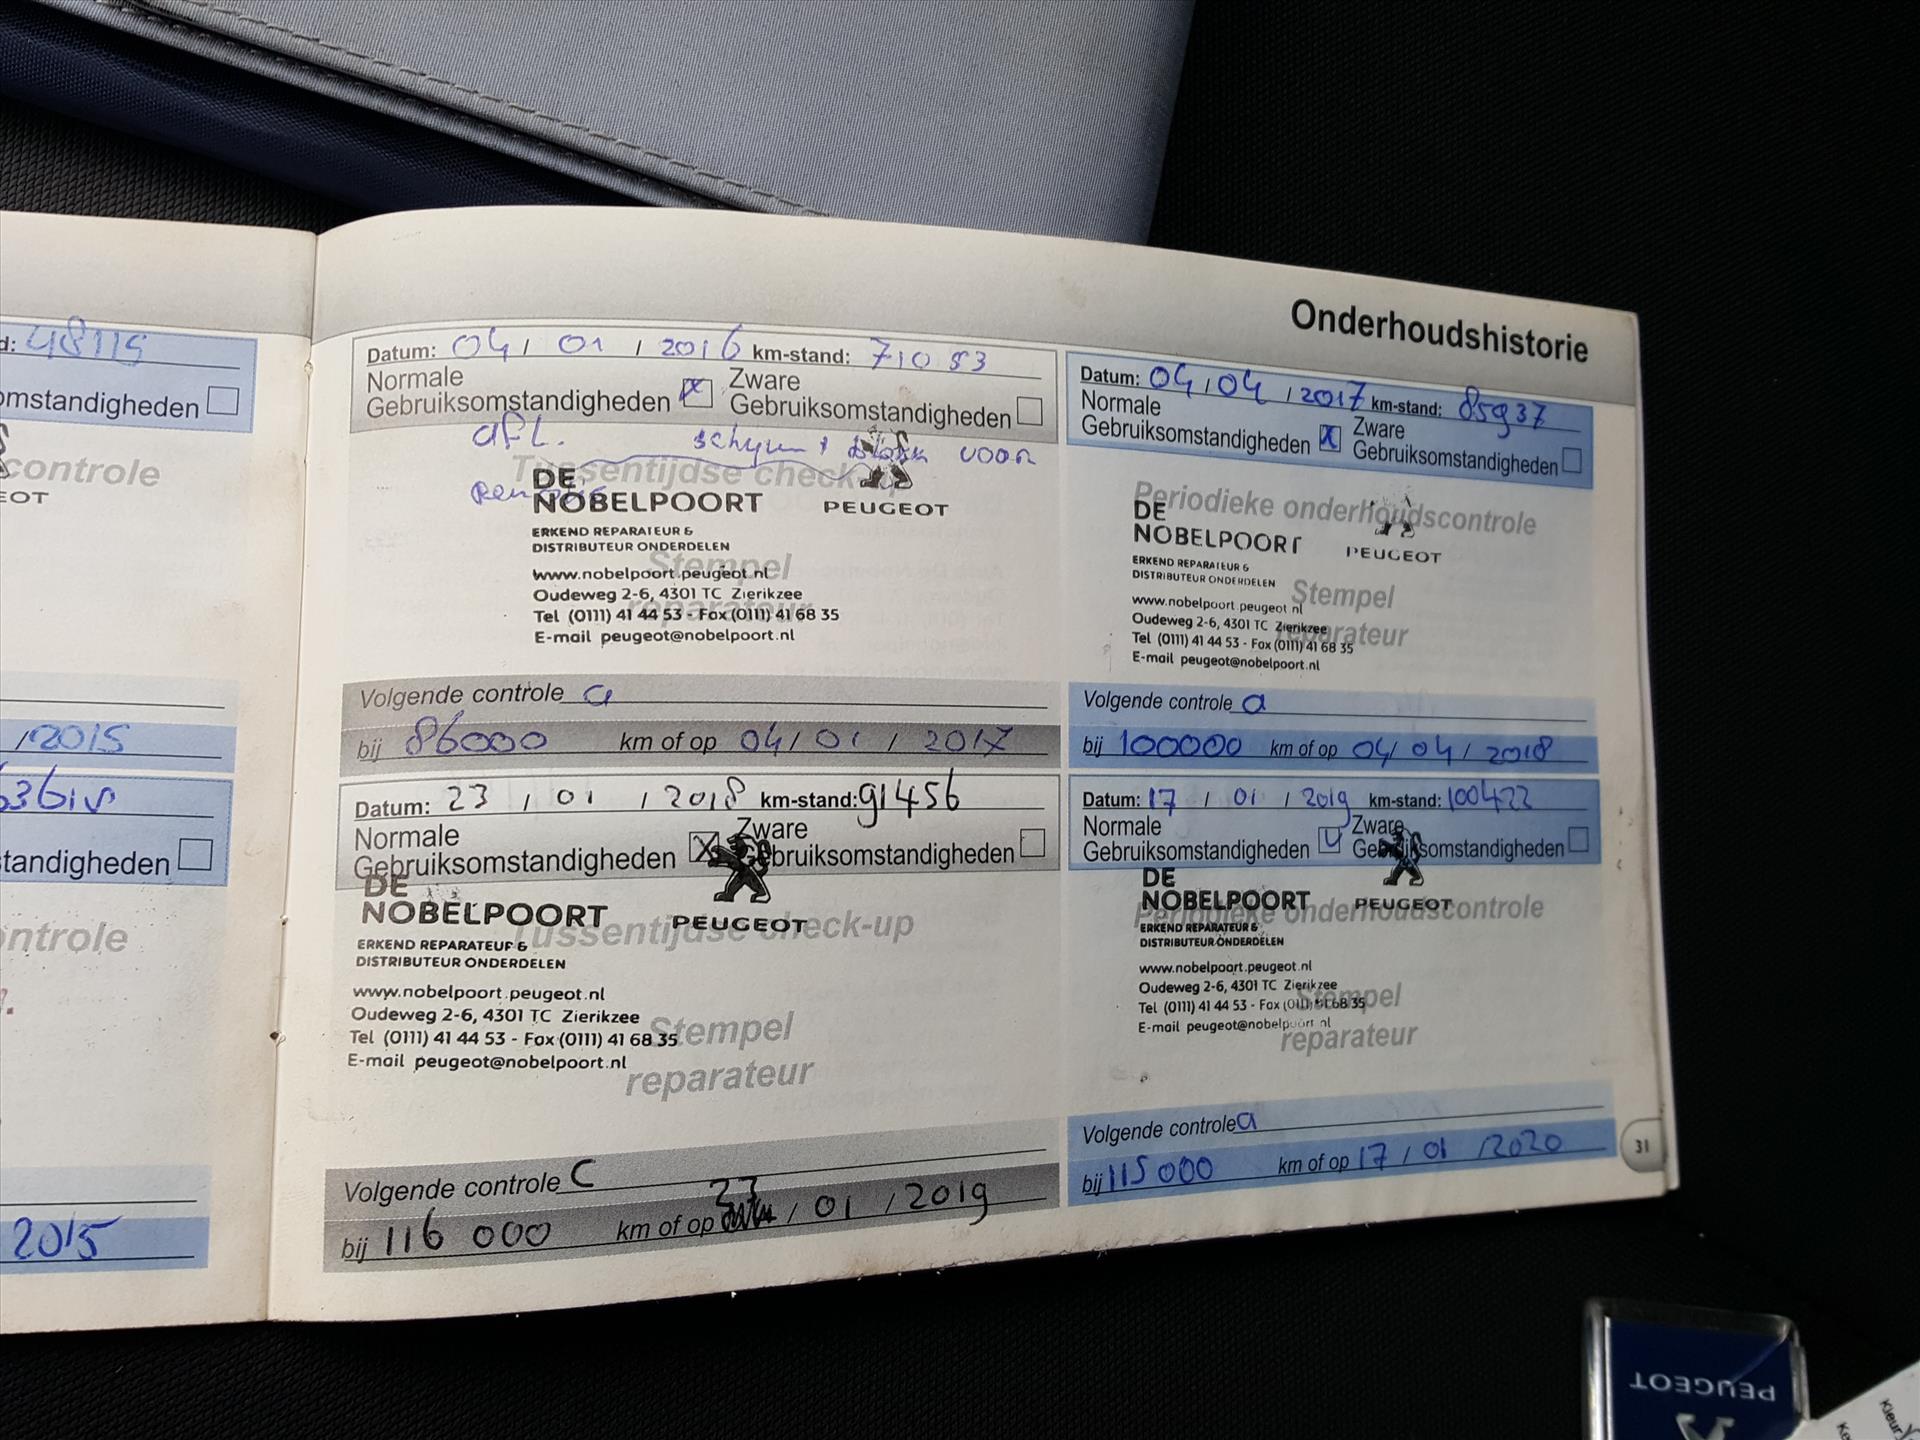 Onderhoudshistorie
48115
omstandigheden
controle
EOT
2015
tandigheden
ntrole
2015
Datum: 04 / 01 / 2016 km-stand: 71053
Normale Gebruiksomstandigheden x Zware Gebruiksomstandigheden
voor
Tussentijdse check-up
DE
NOBELPOORT PEUGEOT
ERKEND REPARATEUR &
DISTRIBUTEUR ONDERDELEN
Stempel
reparateur
www.nobelpoort.peugeot.nl
Oudeweg 2-6, 4301 TC Zierikzee
Tel (0111) 41 44 53 - Fax (0111) 41 68 35
E-mail peugeot@nobelpoort.nl
Volgende controle a
bij 86000 km of op 04 / 01 / 2017
Datum: 04 / 04 / 2017 km-stand: 85937
Normale Gebruiksomstandigheden x Zware Gebruiksomstandigheden
Periodieke onderhoudscontrole
DE
NOBELPOORT PEUGEOT
ERKEND REPARATEUR &
DISTRIBUTEUR ONDERDELEN
Stempel
reparateur
www.nobelpoort.peugeot.nl
Oudeweg 2-6, 4301 TC Zierikzee
Tel (0111) 41 44 53 - Fax (0111) 41 68 35
E-mail peugeot@nobelpoort.nl
Volgende controle a
bij 100000 km of op 04 / 04 / 2018
Datum: 23 / 01 / 2018 km-stand: 91456
Normale Gebruiksomstandigheden X Zware Gebruiksomstandigheden
DE
NOBELPOORT PEUGEOT
Tussentijdse check-up
ERKEND REPARATEUR &
DISTRIBUTEUR ONDERDELEN
www.nobelpoort.peugeot.nl
Oudeweg 2-6, 4301 TC Zierikzee
Tel (0111) 41 44 53 - Fax (0111) 41 68 35
E-mail peugeot@nobelpoort.nl
Stempel
reparateur
Volgende controle C
bij 116 000 km of op 23 / 01 / 2019
Datum: 17 / 01 / 2019 km-stand: 100422
Normale Gebruiksomstandigheden Zware Gebruiksomstandigheden
DE
NOBELPOORT PEUGEOT
Periodieke onderhoudscontrole
ERKEND REPARATEUR &
DISTRIBUTEUR ONDERDELEN
www.nobelpoort.peugeot.nl
Oudeweg 2-6, 4301 TC Zierikzee
Tel (0111) 41 44 53 - Fax (0111) 41 68 35
E-mail peugeot@nobelpoort.nl
Stempel
reparateur
Volgende controle a
bij 115000 km of op 17 / 01 / 2020
31
PEUGEOT
Kleur